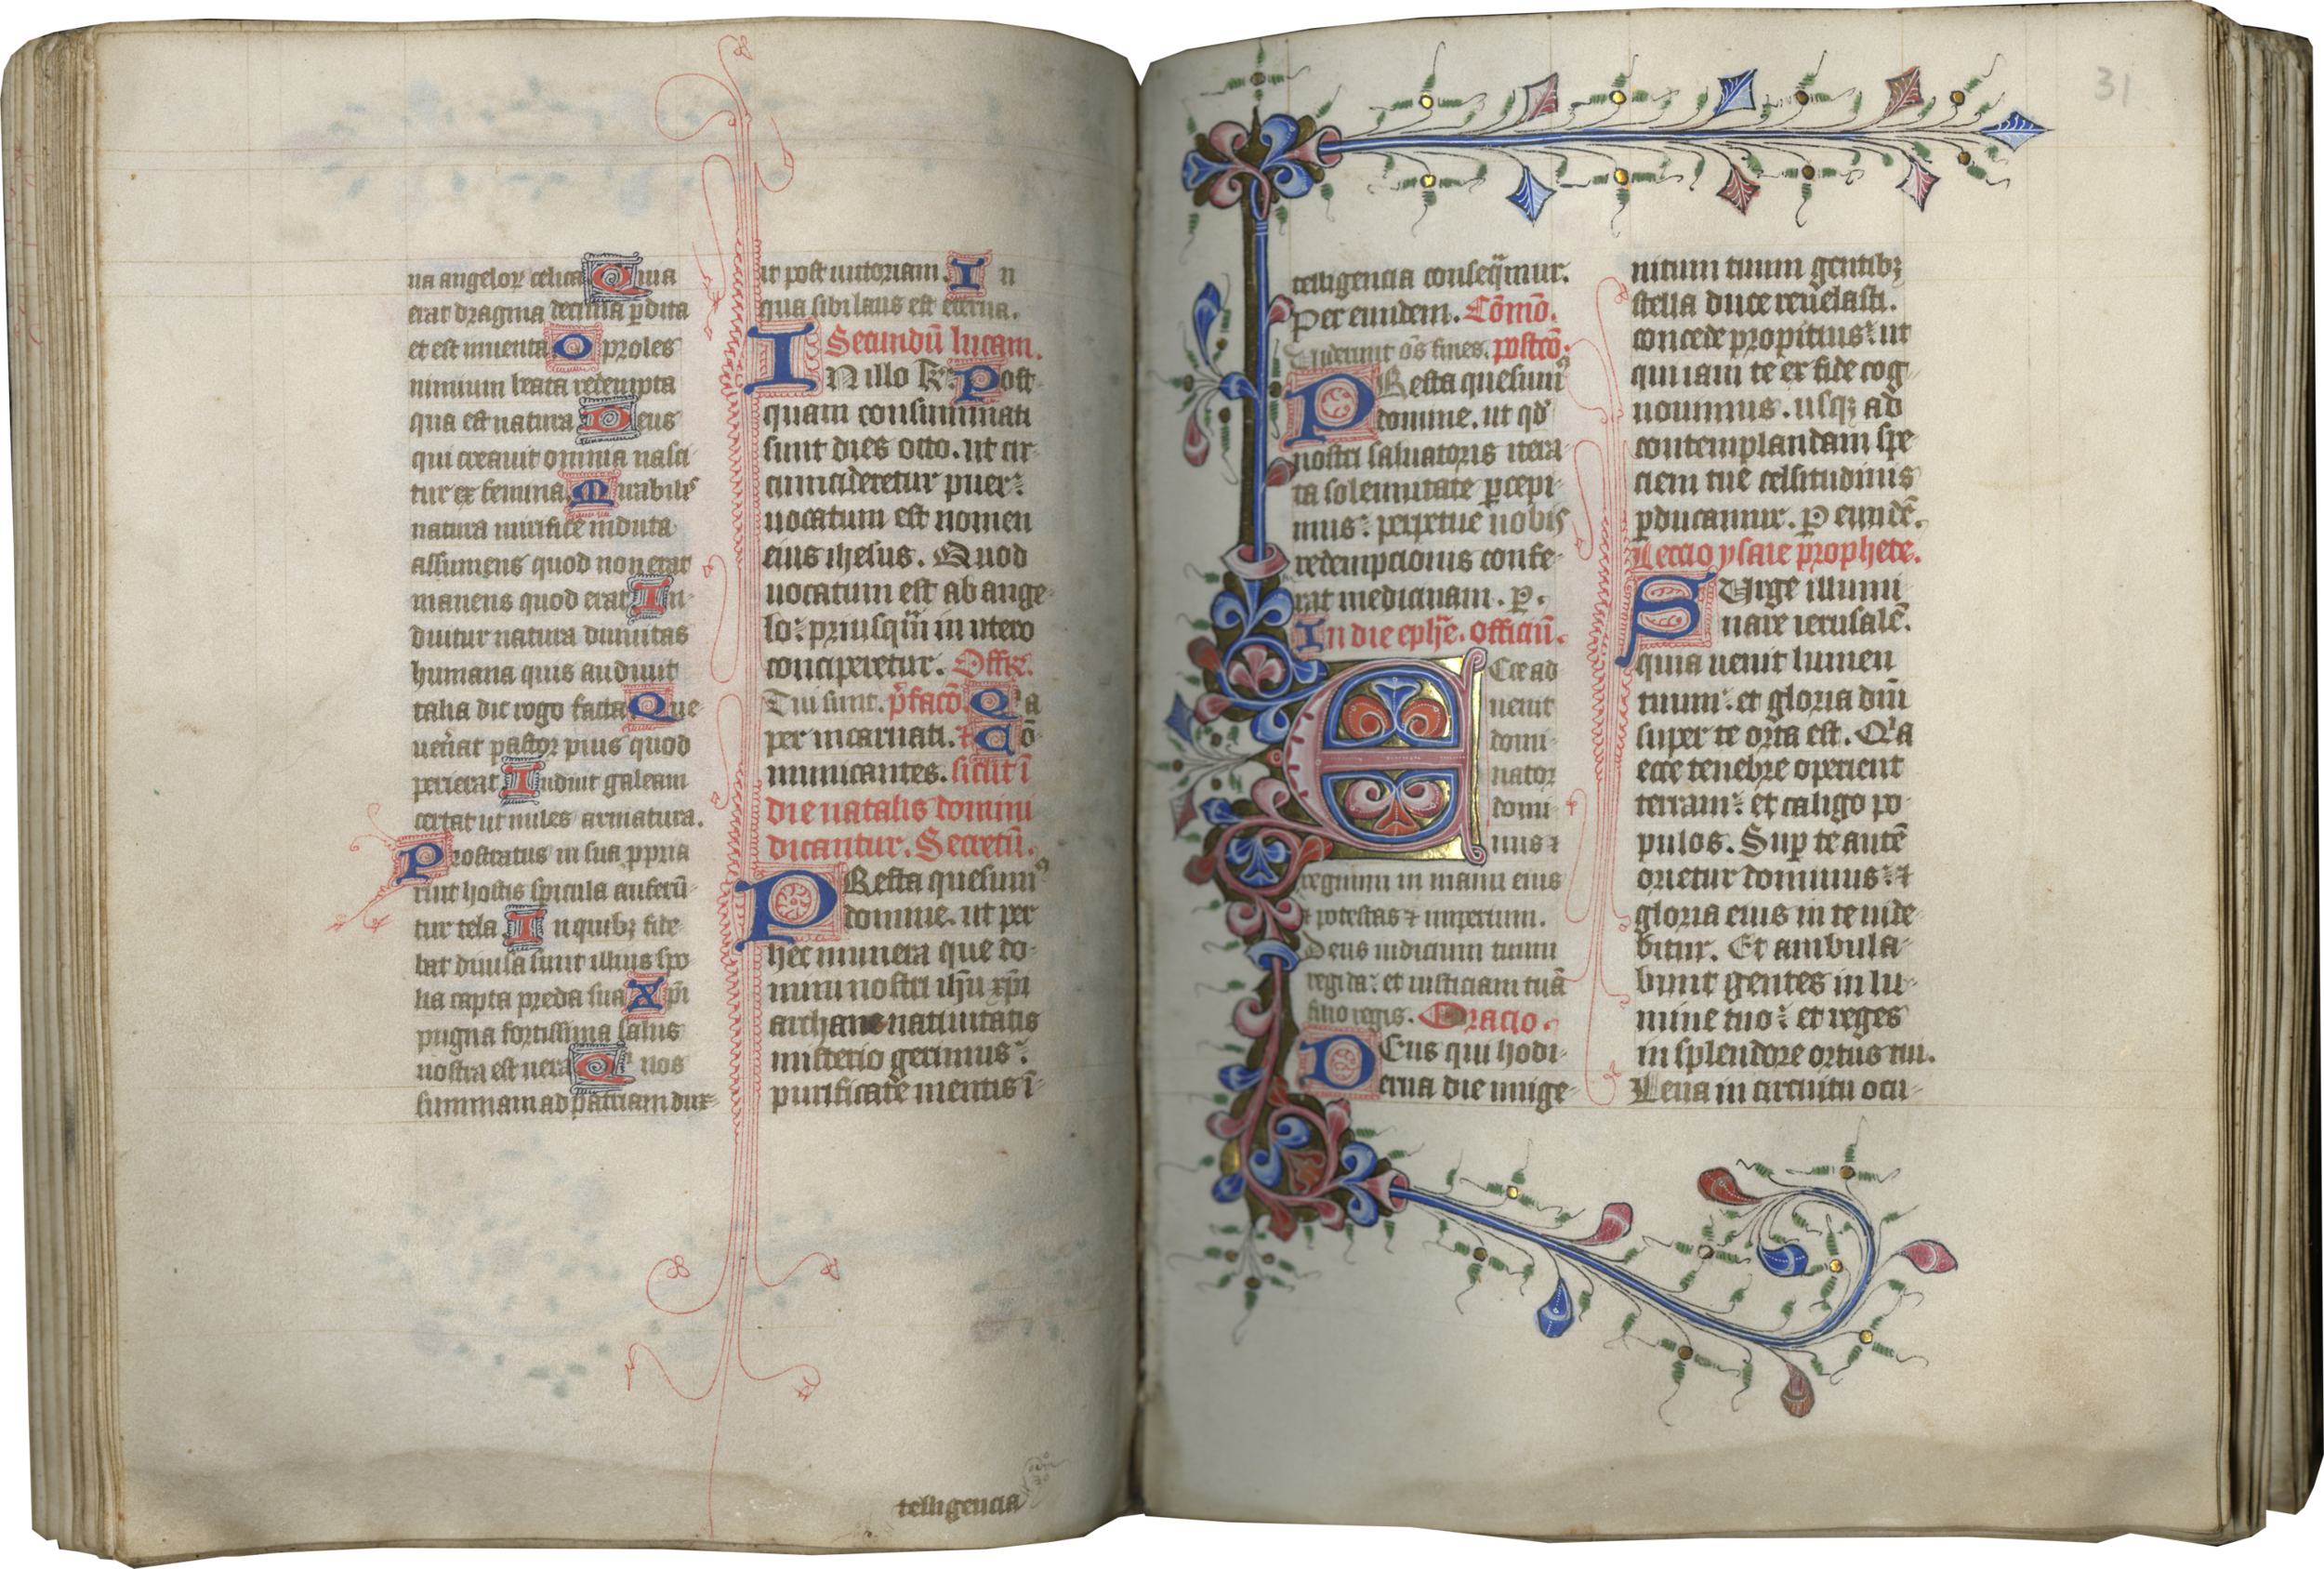 na angeloꝝ celica Qua
erat dragma decima ꝑdita
et est inuenta O proles
nimium beata redempta
qua est natura Deus
qui creauit omnia nasci
tur ex femina Mirabilis
natura mirifice induta
assumens quod non erat
manens quod erat In
duitur natura diuinitas
humana quis audiuit
talia dic rogo facta Que
uen̄at pastor pius quod
perierat Induit galeam
certat ut miles armatura.
Prostratus in sua ꝓpria
ruit hostis spicula auferū
tur tela In quibꝫ fide
bat diuisa sunt illius spo
lia capta preda sua Xpī
pugna fortissima salus
nostra est uera Qi nos
summam ad patriam dux
it post uictoriam. In
qua sibi laus est eterna.
Secundū lucam.
IN illo t̄. Post
quam consummati
sunt dies octo. ut cir
cumcideretur puer:
uocatum est nomen
eius ihesus. Quod
uocatum est ab ange
lo: priusqm̄ in utero
conciperetur. Offr̄.
Tui sunt. p̄facō. Qia
per incarnati. ⁊ Cō
municantes. sicut ī
die natalis domini
dicantur. Secretū.
PResta quesumꝰ
domine. ut per
hec munera que do
mini nostri ihū xpī
archane natiuitatis
misterio gerimus:
purificate mentis ī
telligencia
31
telligencia conseq̄mur.
Per eundem. Cōmō.
Uiderunt oēs fines. postcō.
PResta quesumꝰ
domine. ut qd̄
nostri saluatoris itera
ta solennitate ꝑcepi
mus: perpetue nobis
redempcionis confe
rat medicinam. ꝑ.
In die eph̄e. officiū.
Ecce ad
uenit
domi
nator
domi
nus ⁊
regnum in manu eius
⁊ potestas ⁊ imperium.
Deus iudicium tuum
regi da: et iusticiam tuā
filio regis. Oracio.
DEus qui hodi
erna die unige
nitum tuum gentibꝫ
stella duce reuelasti.
concede propitius: ut
qui iam te ex fide cog
nouimus. usqꝫ ad
contemplandam spe
ciem tue celsitudinis
ꝑducamur. P eundē.
Leccio ysaie prophete.
SUrge illumi
nare ierusalē.
quia uenit lumen
tuum: et gloria dn̄i
super te orta est. Qia
ecce tenebre operient
terram: et caligo po
pulos. Suꝑ te autē
orietur dominus: ⁊
gloria eius in te uide
bitur. Et ambula
bunt gentes in lu
mine tuo: et reges
in splendore ortus tui.
Leua in circuitu ocu